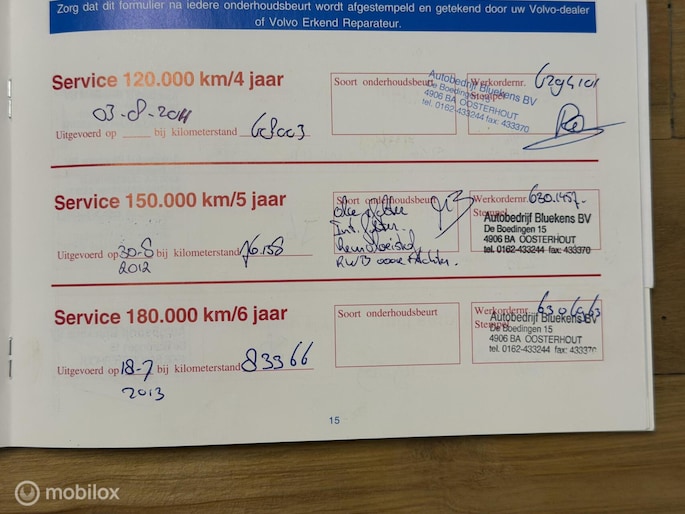 Zorg dat dit formulier na iedere onderhoudsbeurt wordt afgestempeld en getekend door uw Volvo-dealer
of Volvo Erkend Reparateur.
Service 120.000 km/4 jaar
03-8-2011
Uitgevoerd op bij kilometerstand 68003
Soort onderhoudsbeurt
Werkordernr.
Stempel
Autobedrijf Bluekens BV
De Boedingen 15
4906 BA OOSTERHOUT
tel. 0162-433244 fax: 433370
Service 150.000 km/5 jaar
Uitgevoerd op 30-8 bij kilometerstand 76.158
2012
Soort onderhoudsbeurt
Olie filter
Int. filter
Remvloeistof
RWB voor + Achter.
Werkordernr. 630.1457-
Stempel
Autobedrijf Bluekens BV
De Boedingen 15
4906 BA OOSTERHOUT
tel. 0162-433244 fax: 433370
Service 180.000 km/6 jaar
Uitgevoerd op 18-7 bij kilometerstand 83366
2013
Soort onderhoudsbeurt
Werkordernr.
Stempel
Autobedrijf Bluekens BV
De Boedingen 15
4906 BA OOSTERHOUT
tel. 0162-433244 fax: 433370
15
mobilox